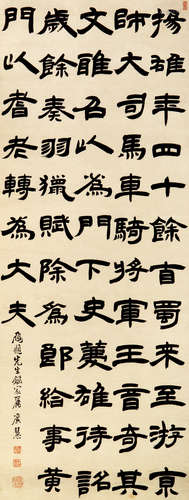 揚雄年四十餘自蜀來至游京
師大司馬車騎將軍王音奇其
文雅召以為門下史薦雄待詔
歲餘奏羽獵賦除為郎給事黃
門以耆老轉為大夫
先生